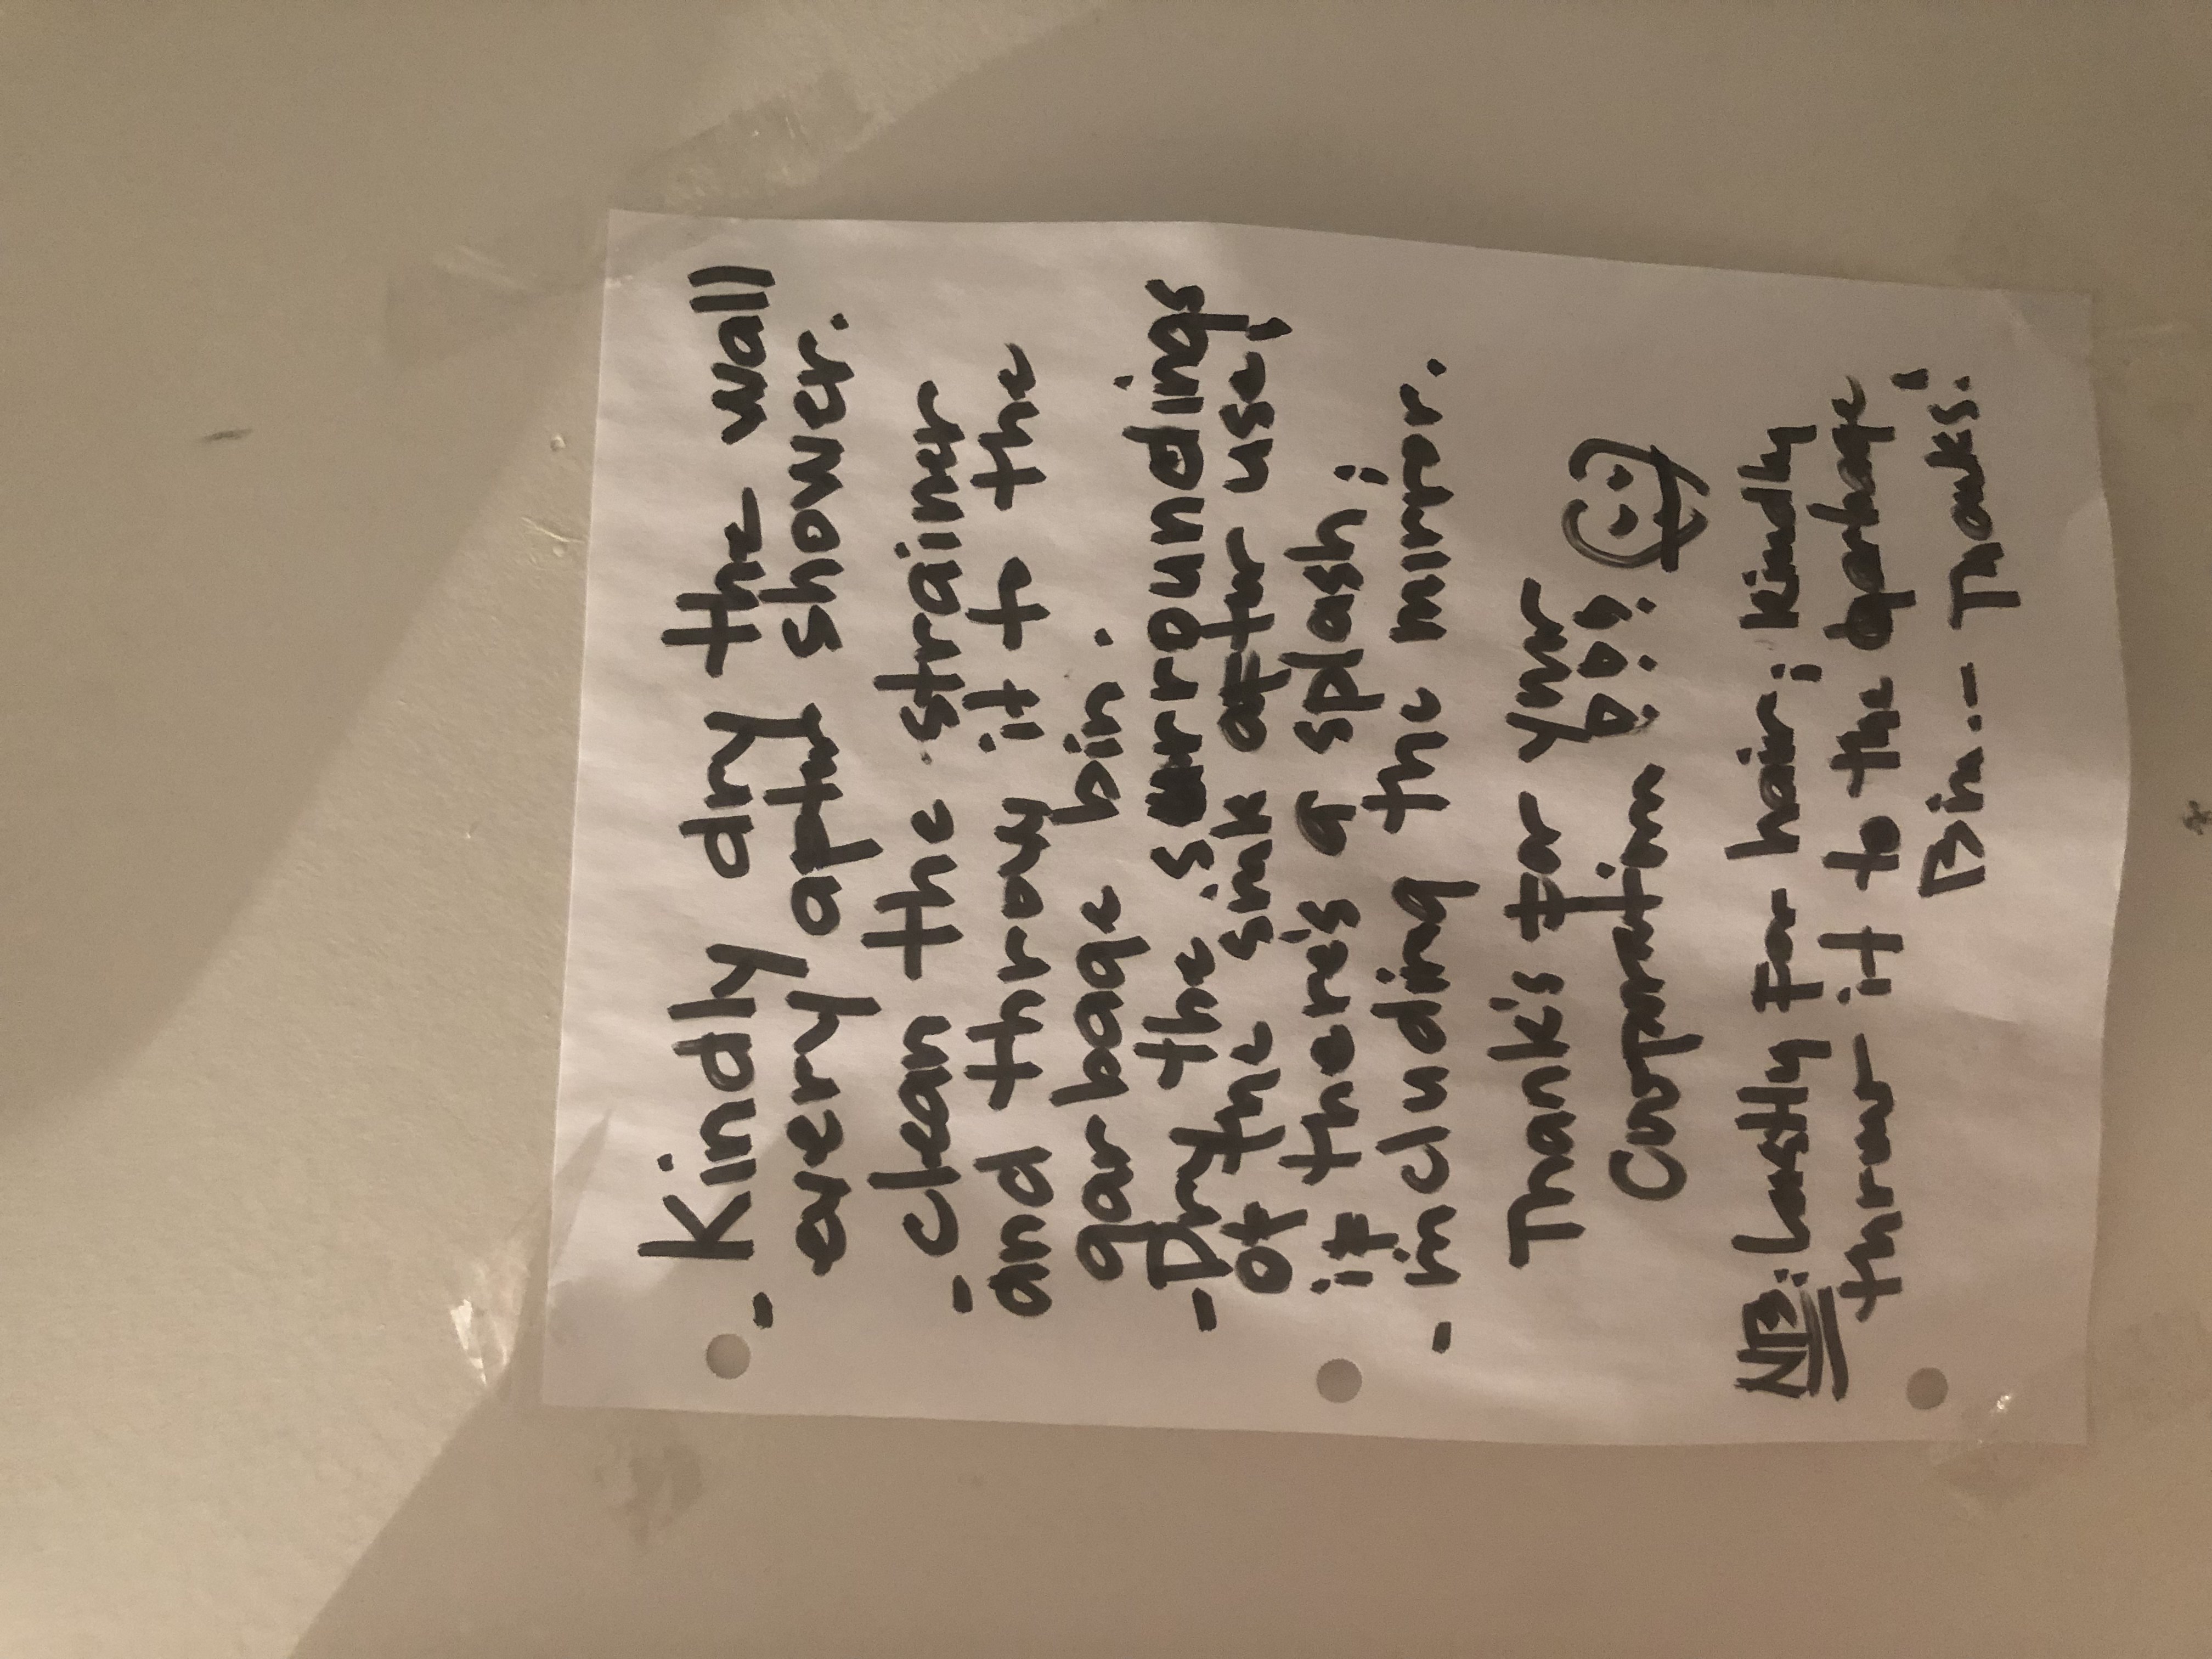 - Kindly dry the wall
every after shower.
- clean the strainer
and throw it to the
garbage bin.
- Dry the surroundings
of the sink after use!
if there's a splash;
- including the mirror.
Thank's for your
Cooperation !!!
NB: Lastly for hair; kindly
throw it to the garbage
Bin -- Thanks!